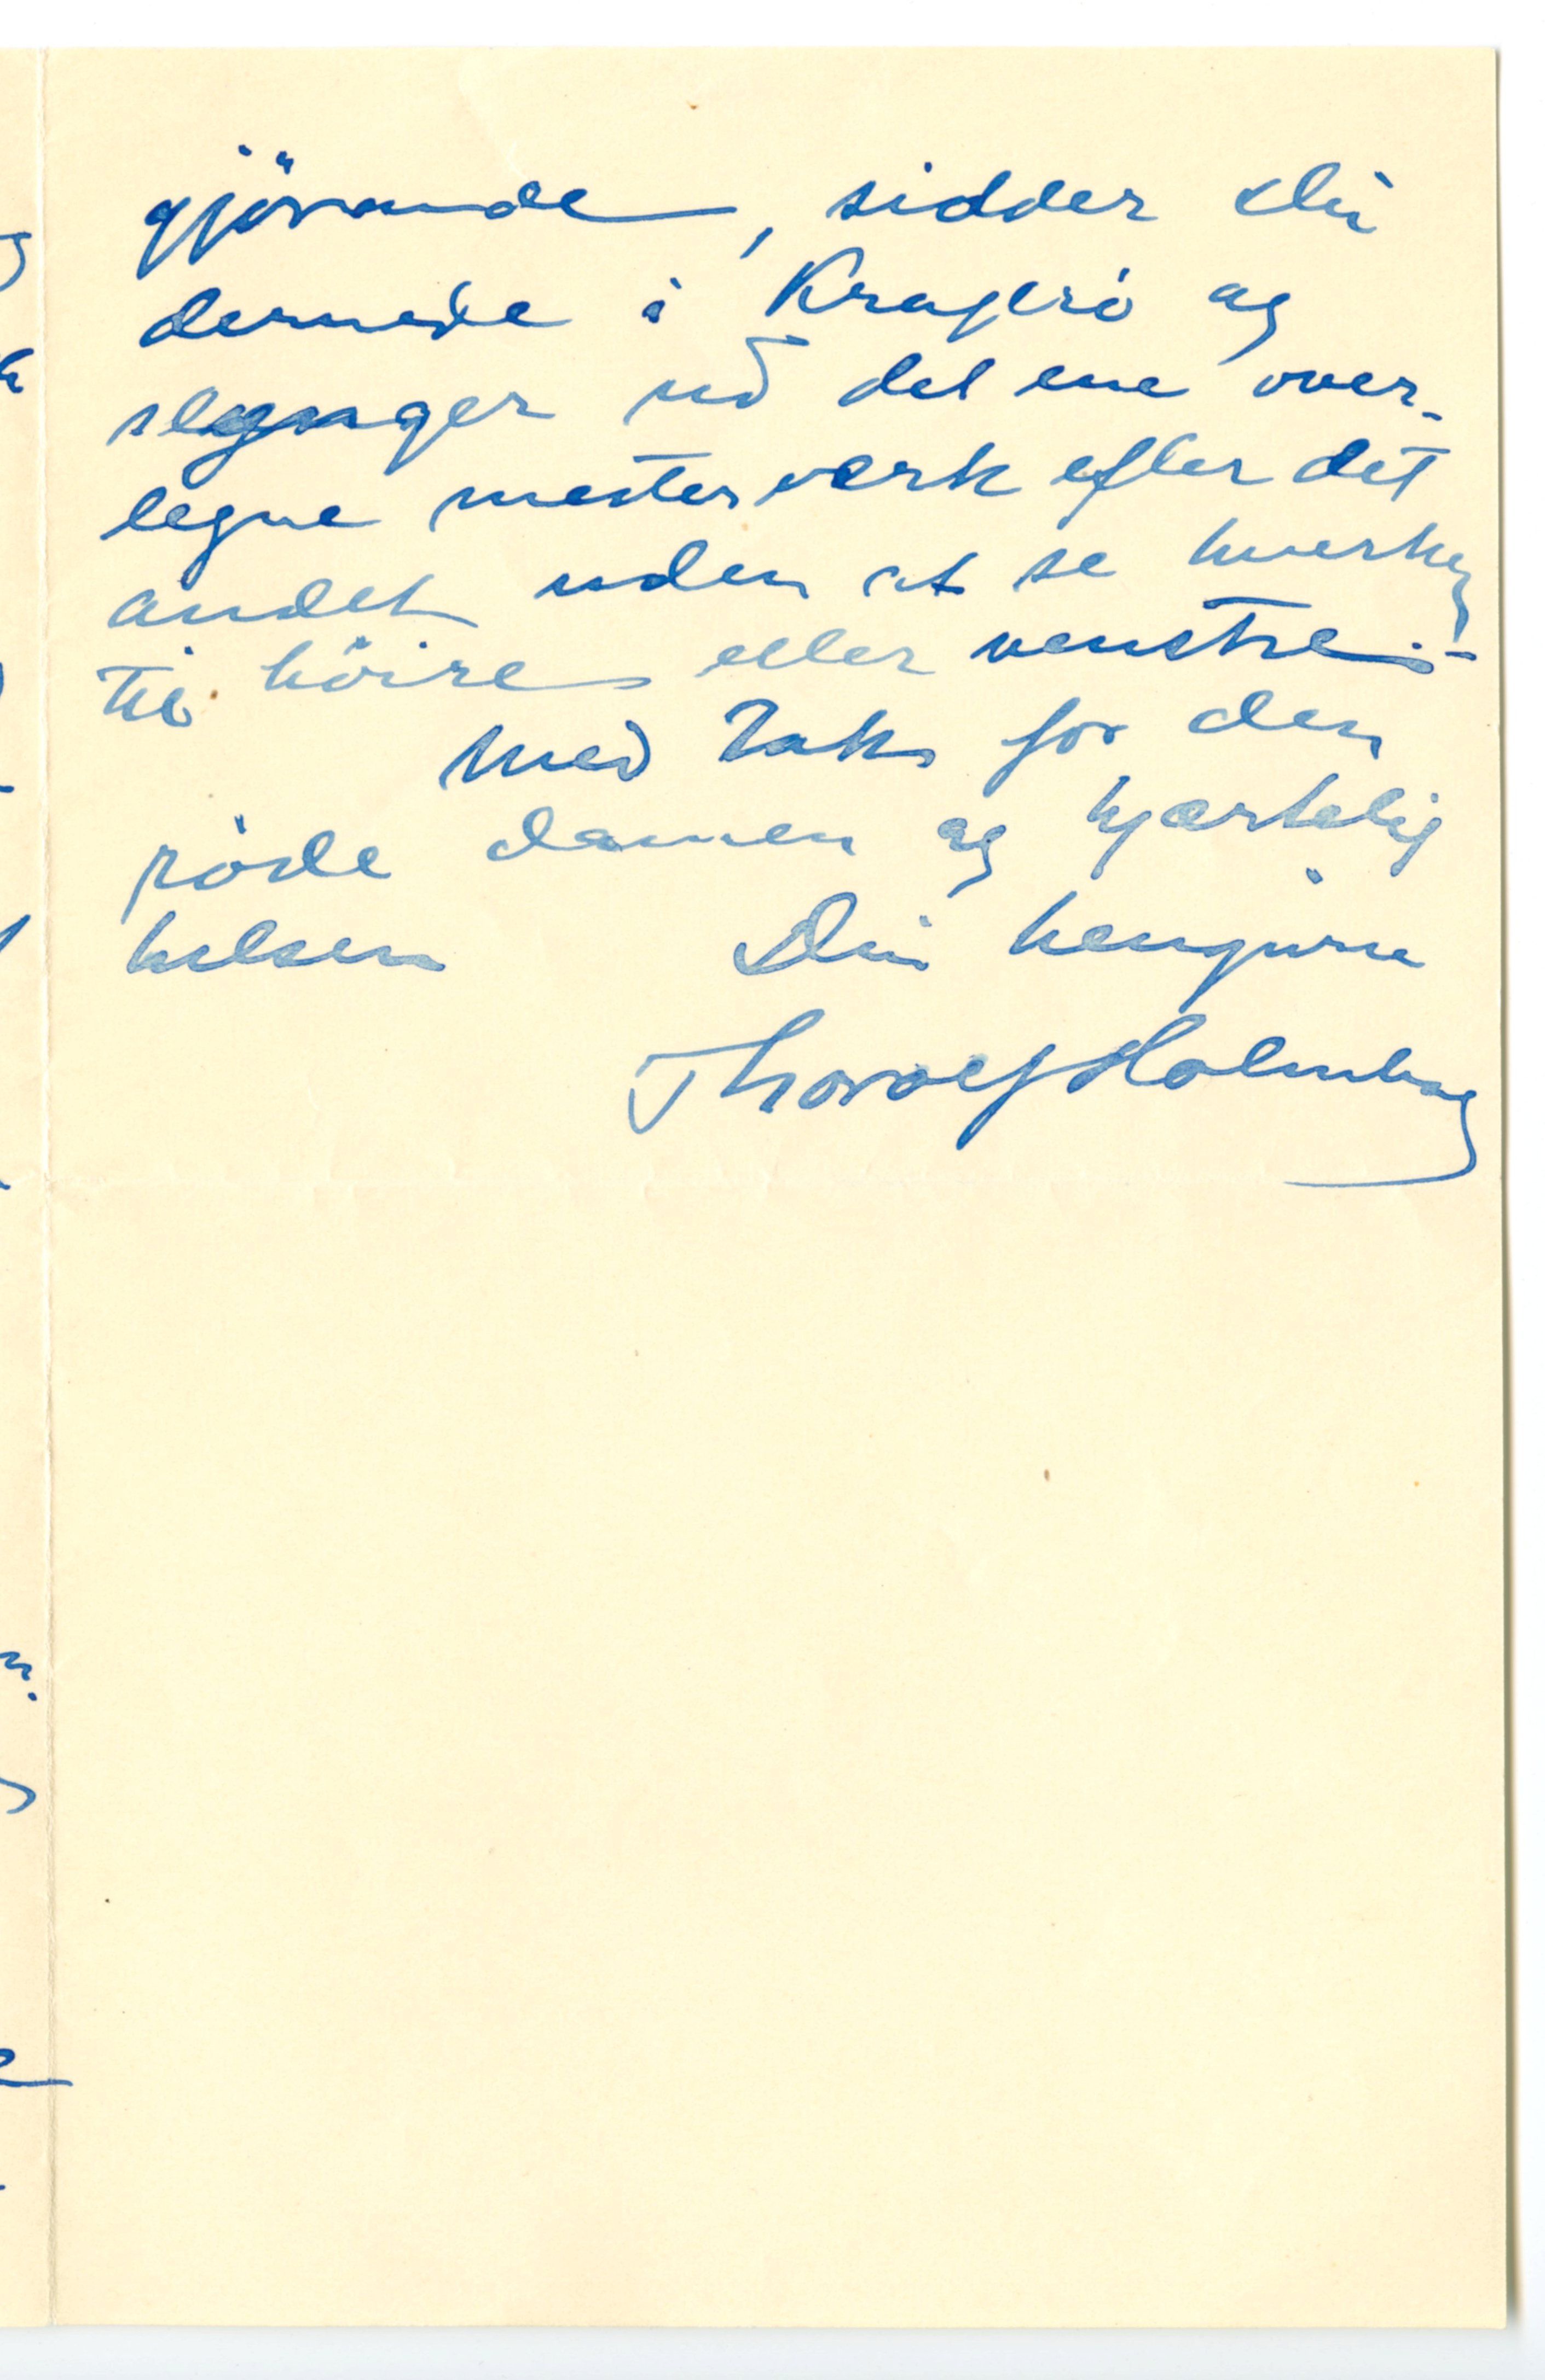 gjörande, sidder du
dernede i Kragerö og
slynger ud det ene over-
legne mesterverk efter det
andet uden at se hverken
til höire eller venstre.-
Med Tak for den
röde damen og hjærtelig
hilsen Din hengivne
Thorolf Holmboe